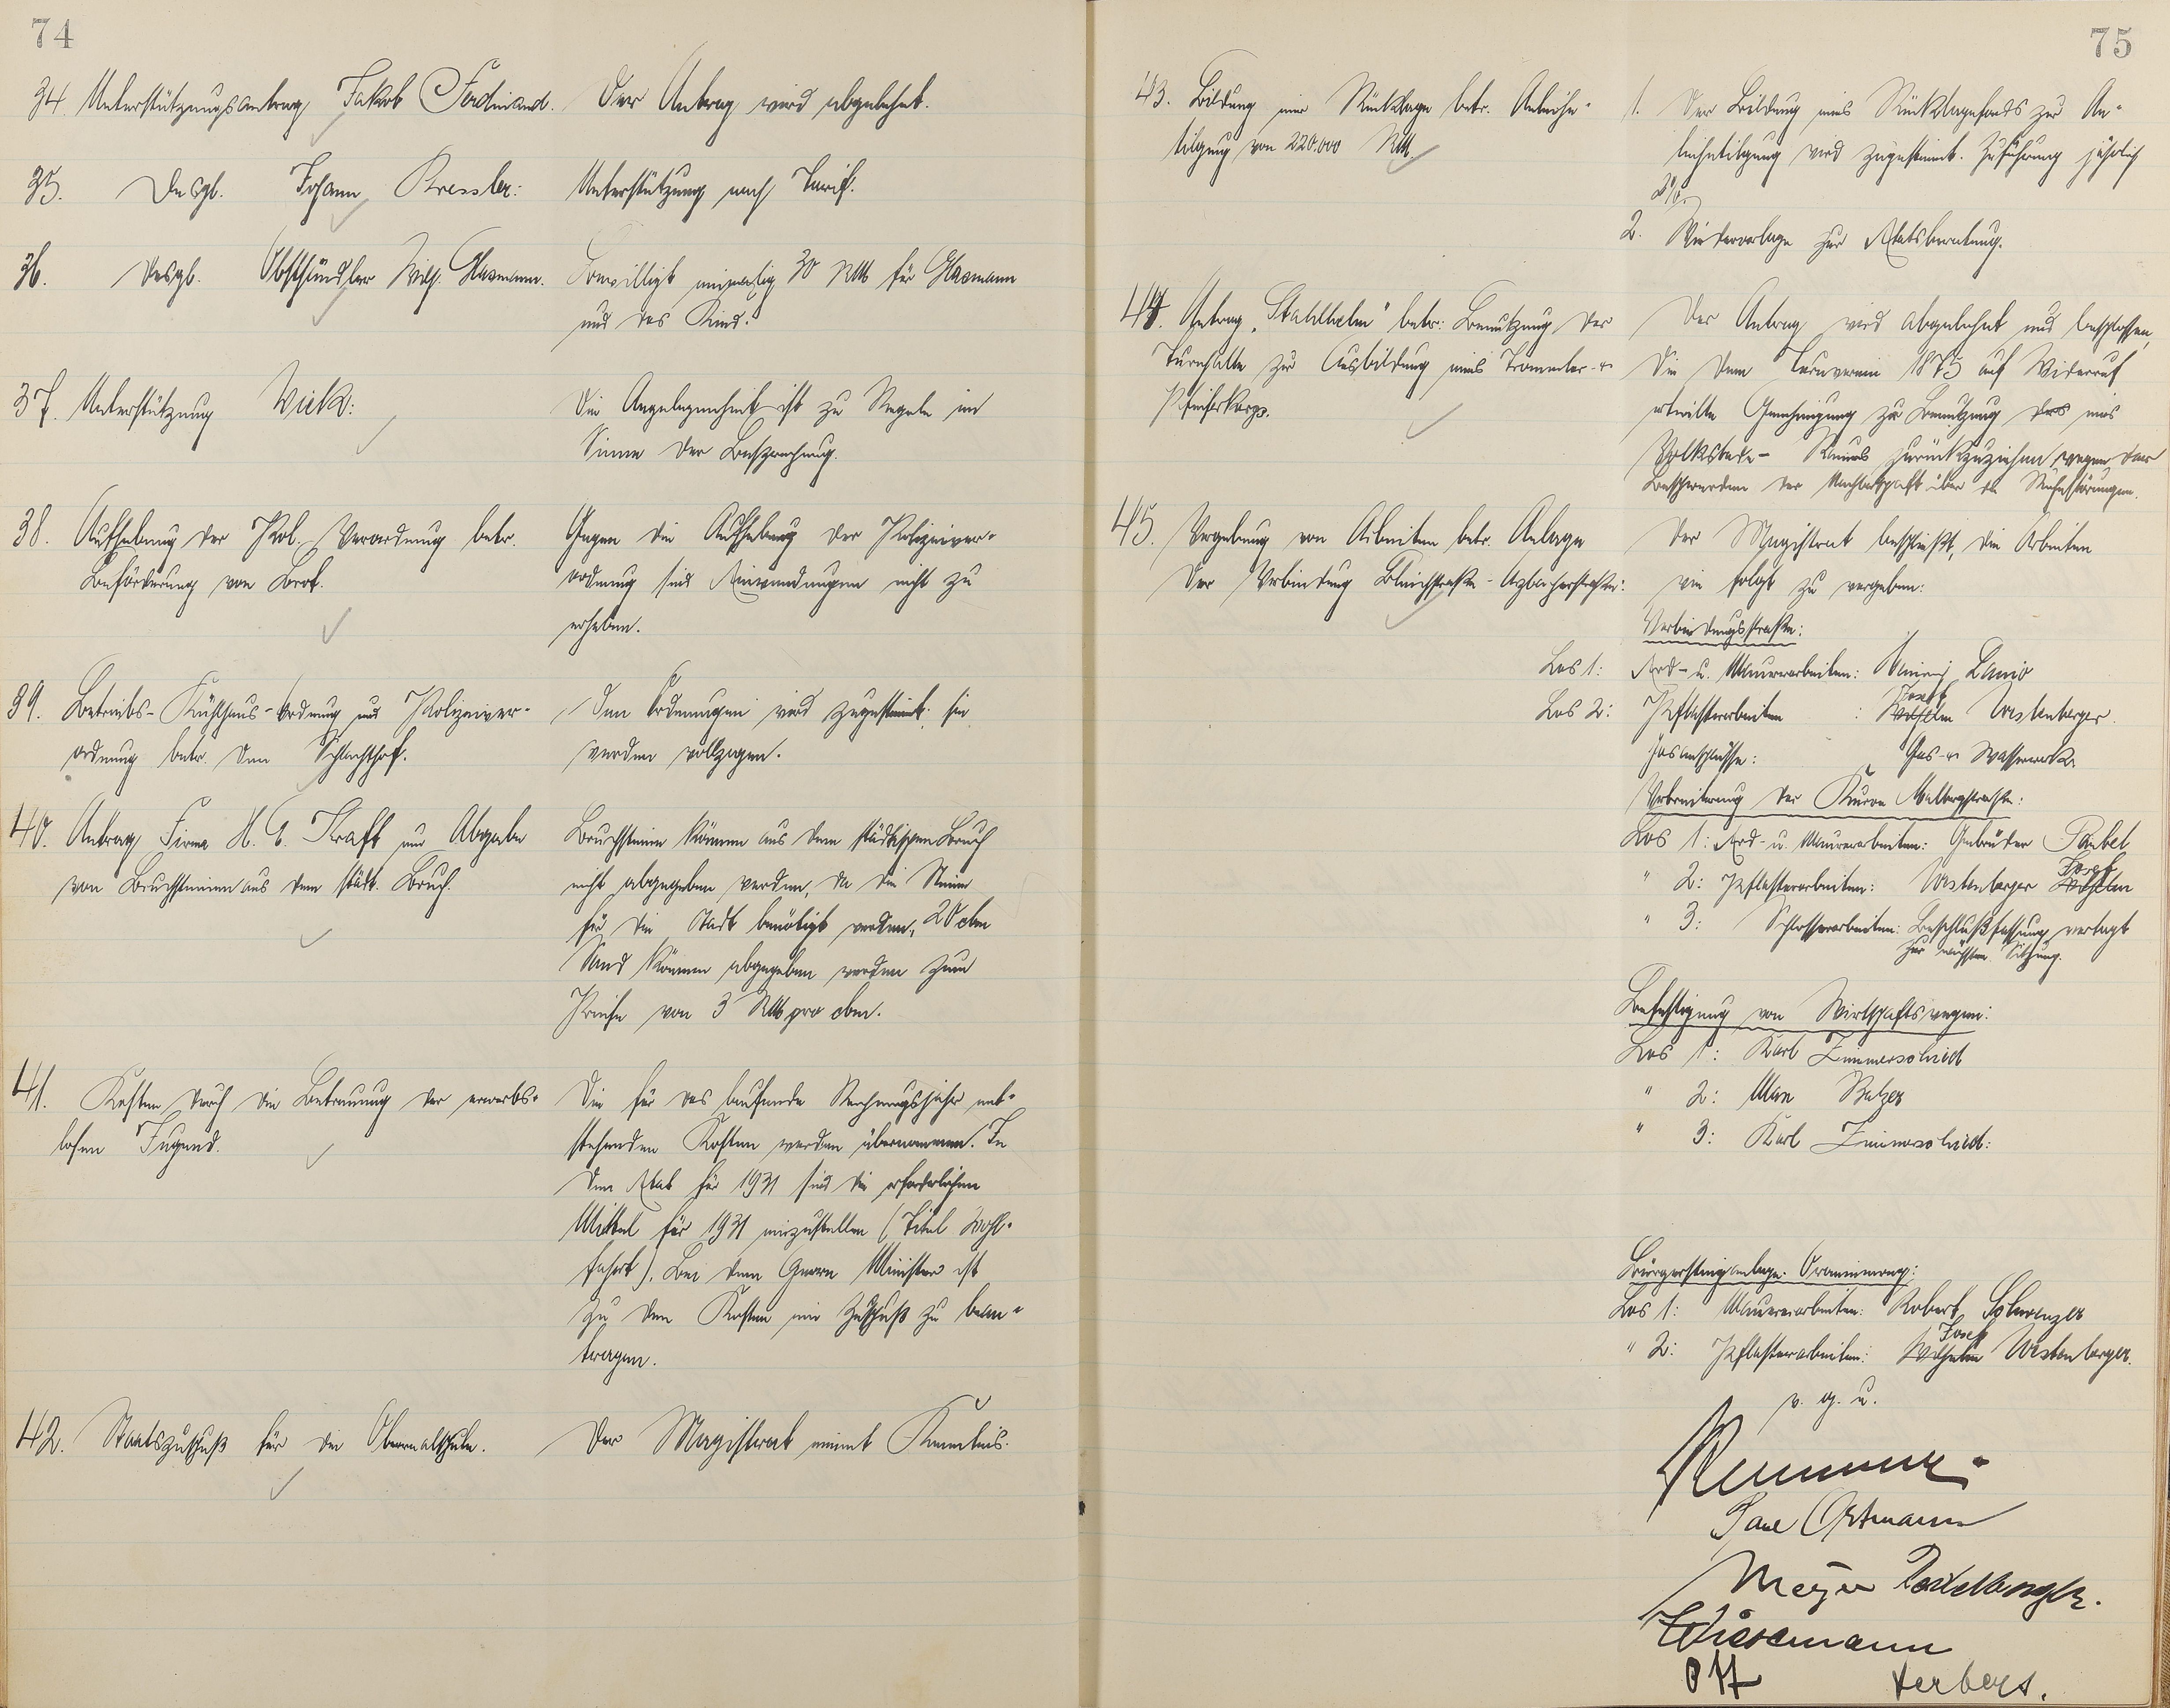 74
34. Unterstützungsantrag Jakob Ferdinand.
Der Antrag wird abgelehnt.
35. Desgl. Johann Kressler:
Unterstützung nach Tarif.
36. Desgl. Obsthändler Wilh. Glasmann.
Bewilligt einmalig 30 RM für Glasmann
und das Kind.
37. Unterstützung Wick:
Die Angelegenheit ist zu Regeln im
Sinne der Besprechung.
38. Aufhebung der Pol. Verordnung betr.
Beförderung von Brot.
Gegen die Aufhebung der Polizeiver-
ordnung sind Einwendungen nicht zu
erheben.
39. Betriebs-Kühlhaus-Ordnung und Polizeiver-
ordnung betr. den Schlachthof.
Den Ordnungen wird zugestimmt. sie
werden vollzogen.
40. Antrag Firma H. C. Kraft um Abgabe
von Bruchsteinen aus dem städt. Bruch.
Bruchsteine können aus dem städtischen Bruch
nicht abgegeben werden, da die Steine
für die Stadt benötigt werden, 20 cbm
Sand können abgegeben werden zum
Preise von 3 RM pro cbm.
41. Kosten durch die Betreuung der erwerbs-
losen Jugend.
Die für das laufende Rechnungsjahr ent-
stehenden Kosten werden übernommen. In
den Etat für 1931 sind die erforderlichen
Mittel für 1931 einzustellen (Titel Wohl-
fahrt). Bei dem Herrn Minister ist
zu den Kosten ein Zuschuß zu bean-
tragen.
42. Staatszuschuß für die Oberrealschule.
Der Magistrat nimmt Kenntnis.
75
43. Bildung einer Rücklage betr. Anleihe-
tilgung von 220.000 RM.
1. Der Bildung eines Rücklagefonds zur An-
leihetilgung wird zugestimmt. Zuführung jährlich
2%.
2. Wiedervorlage zur Etatsberatung.
44. Antrag "Stahlhelm" betr. Benutzung der
Turnhalle zur Ausbildung eines Trommler- u.
Pfeiferkorps.
Der Antrag wird abgelehnt und beschlossen,
die dem Turnverein 1873 auf Widerruf
erteilte Genehmigung zur Benutzung des eines
Volksbade-Raumes zurückzuziehen wegen der
Beschwerden der Nachbarschaft über die Ruhestörungen.
45. Vergebung von Arbeiten betr. Anlage
der Verbindung Bleichstraße-Arzbacherstraße:
Der Magistrat beschließt, die Arbeiten
wie folgt zu vergeben:
Verbindungsstraße:
Los 1: Erd- u. Maurerarbeiten: Heinrich Lanio
Los 2: Pflasterarbeiten : Wilhelm Josef Westenberger.
Gasanschlüsse: Gas- u. Wasserwerk.
Verbreiterung der Kurve Malbergstraße:
Los 1: Erd- u. Maurerarbeiten: Gebrüder
" 2: Pflasterarbeiten: Westenberger Wilhelm Josef
" 3: Schlosserarbeiten: Beschlußfassung vertagt
zur nächsten Sitzung.
Befestigung von Wirtschaftswegen:
Los 1: Karl Zimmerschied
" 2: Balzer
" 3: Karl Zimmerschied:
Bürgersteiganlage Oranienweg:
Los 1: Maurerarbeiten: Robert Schwenzer
" 2: Pflasterarbeiten: Wilhelm Josef Westenberger.
v. g. u.
Meyer
Wiesemann
Ott Herbert.